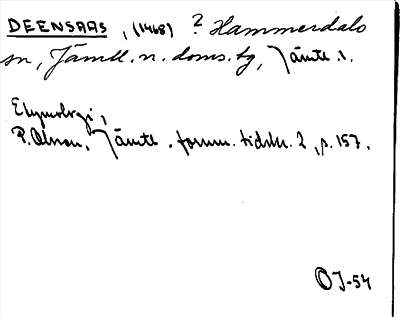 DEENSAAS, (1468) ? Hammerdals
sn, Jämtl. n. doms. tg, Jämtl. l.
Etymologi,
P. Olsson, Jämtl. fornm. tidskr. 2, s. 157.
OJ-54